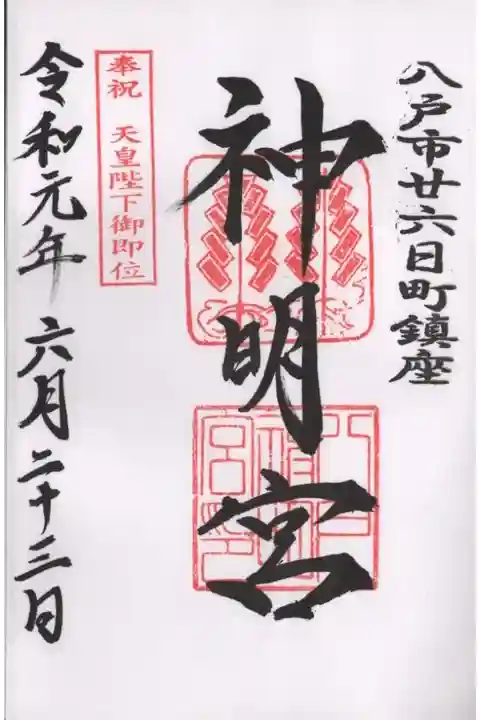 八戸市廿六日町鎮座
神明宮
奉祝 天皇陛下御即位
令和元年 六月二十三日